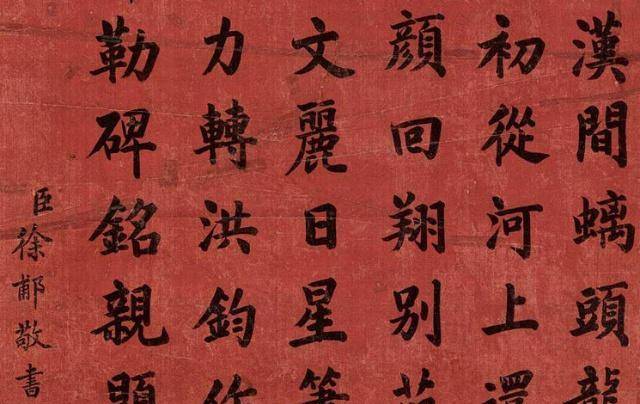 漢間螭頭龍
初從河上還
顏回翔別
文麗日星筆
力轉洪鈞作
勒碑銘親題
臣徐郙敬書